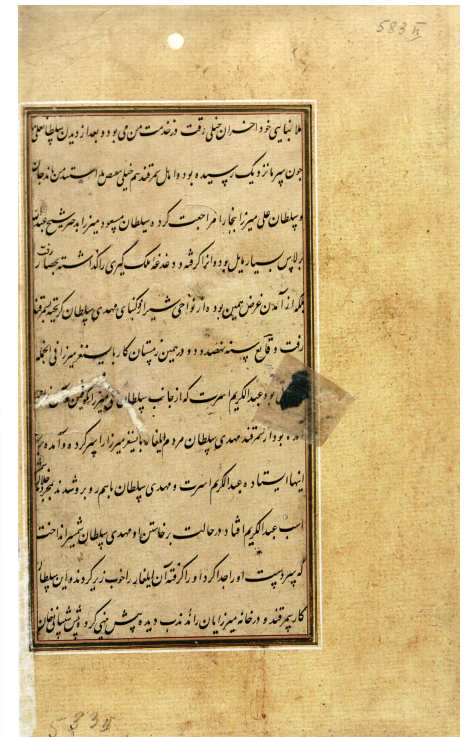 583 II
ملا بنایی خود آخران خیلی وقت در خدمت من می بود و بعد از دیدن سلطان علی
چون سیرما نزدیک رسیده بود و اهل سمرقند هم خیلی
و سلطان علی میرزا ببخارا مراجعت کرد و سلطان مسعود میرزا بدختر شیخ عبدالله
برلاس بسیار مایل بوده و انرا گرفته و دغدغه ملک گیری را گذاشته بحصار رفت
بلکه از آمدن غرض همین بوده از نواحی شیراز و کنبای مهدی سلطان گریخته بسمرقند
رفت وقایع سنه نهصد و دو در همین زمستان کار بایسنغر میرزا فی الجمله
بود عبدالکریم اسرت که از جانب سلطان علی میرزا
آمده بود از سمرقند مهدی سلطان مردم ایلغار بایسنغر میرزا را سر کرده و آمده
اینها ایستاده عبدالکریم اسرت و مهدی سلطان باهم رو برو شدند
اسب عبدالکریم افتاد و در حالت برخاستن او مهدی سلطان شمشیر انداخت
که سر دست او را جدا کرد او را گرفته آن ایلغار را خوب زیر کردند و این سلطان
کار سمرقند و در خانه میرزایان را تذبذب دیده پیش بینی کرد و پیش شیبانی خان
583 II